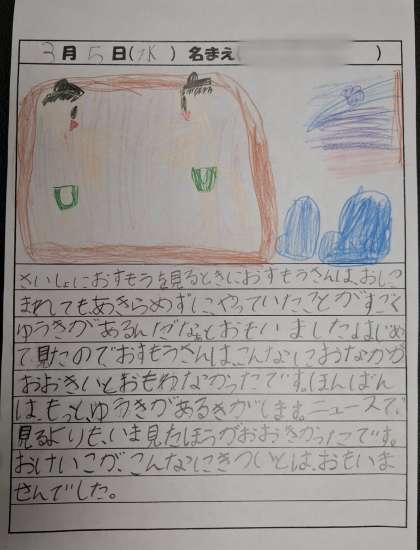 3月5日(水) 名まえ( )
さいしょにおすもうを見るときにおすもうさんは、おしこ
まれてもあきらめずにやっていたことがすごく
ゆうきがあるんだなとおもいましたはじめ
て見たのでおすもうさんは、こんなにおなかが
おおきいとおもわなかったです。ほんばん
は、もっとゆうきがあるきがします。ニュースで、
見るよりも、いま見たほうがおおきかったです。
おけいこが、こんなにきついとは、おもいま
せんでした。